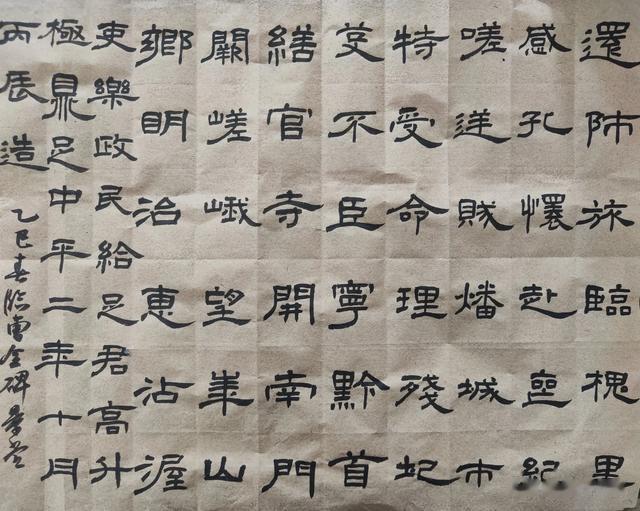 還師旅臨槐里
感孔懷赴喪紀
嗟逆賊燔城市
特受命理殘圮
芟不臣寧黔首
繕官寺開南門
闕嵯峨望華山
鄉明治惠沾渥
吏樂政民給足君高升
極鼎足中平二年十月
丙辰造
乙巳春臨曹全碑